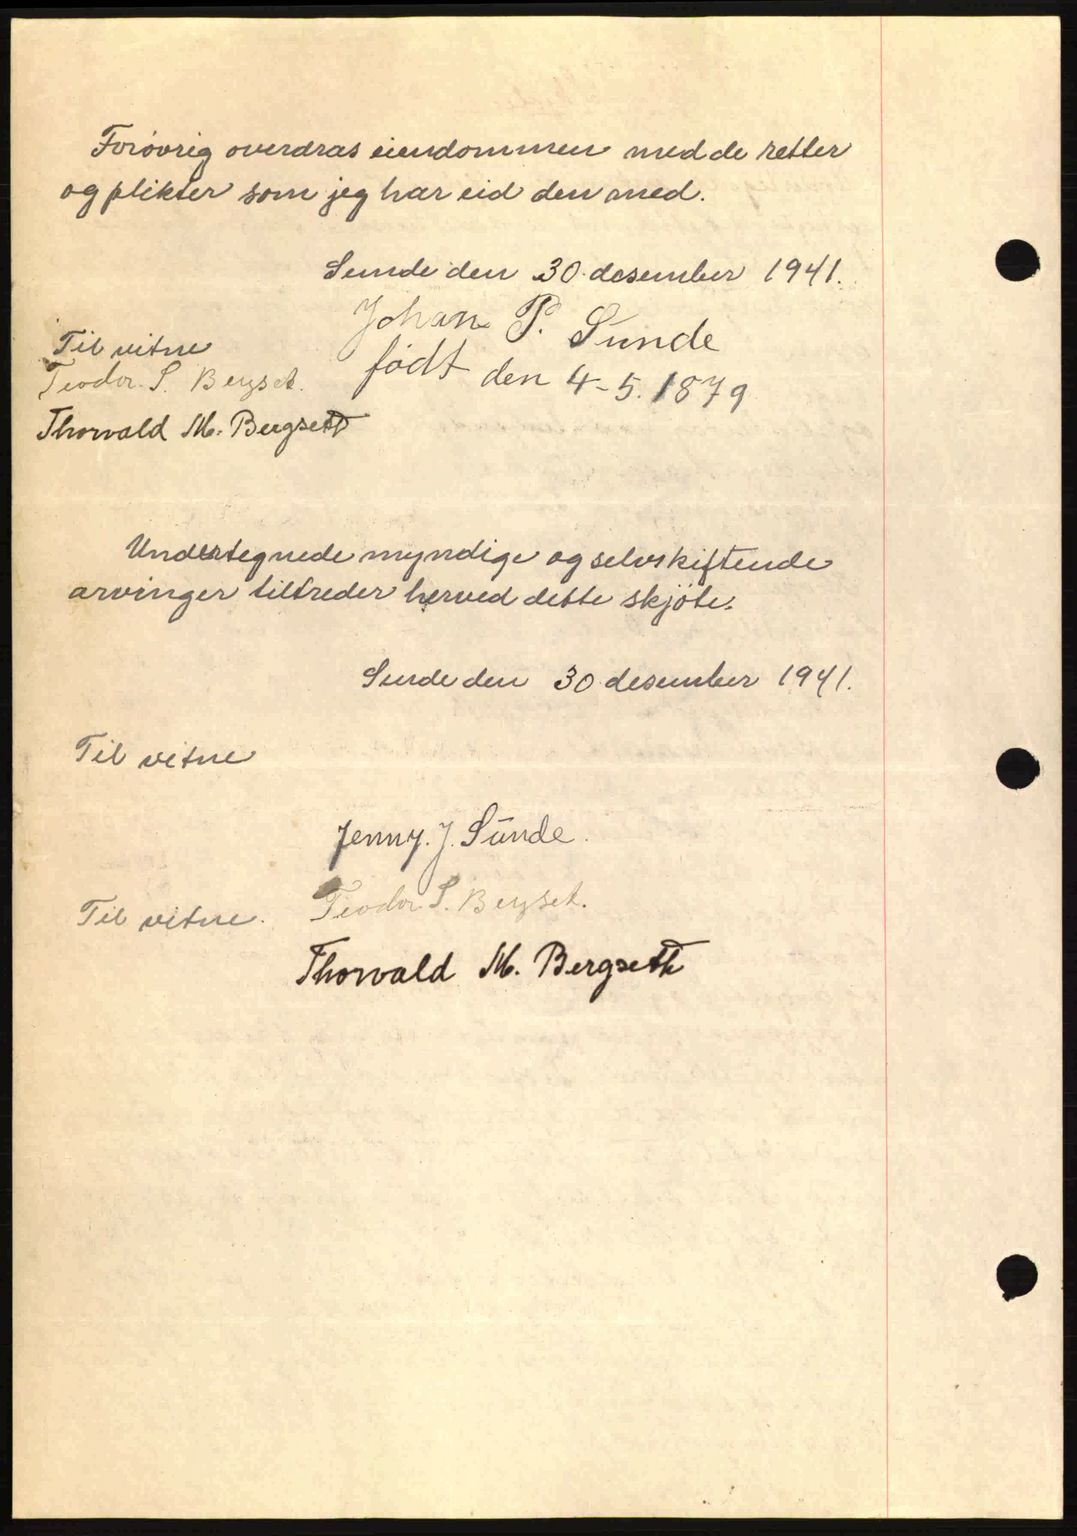 Forøvrig overdras eiendommen med de retter
og plikter som jeg har eid den med.
Sunde den 30 desember 1941.
Johan P. Sunde
født den 4-5.1879
Til vitne
Teodor S. Bergset.
Thorvald M. Bergseth
Undertegnede myndige og selvskiftende
arvinger tiltreder herved dette skjøte.
Sunde den 30 desember 1941.
Til vitne
Jenny. J. Sunde.
Til vitne. Teodor S. Bergset.
Thorvald M. Bergseth